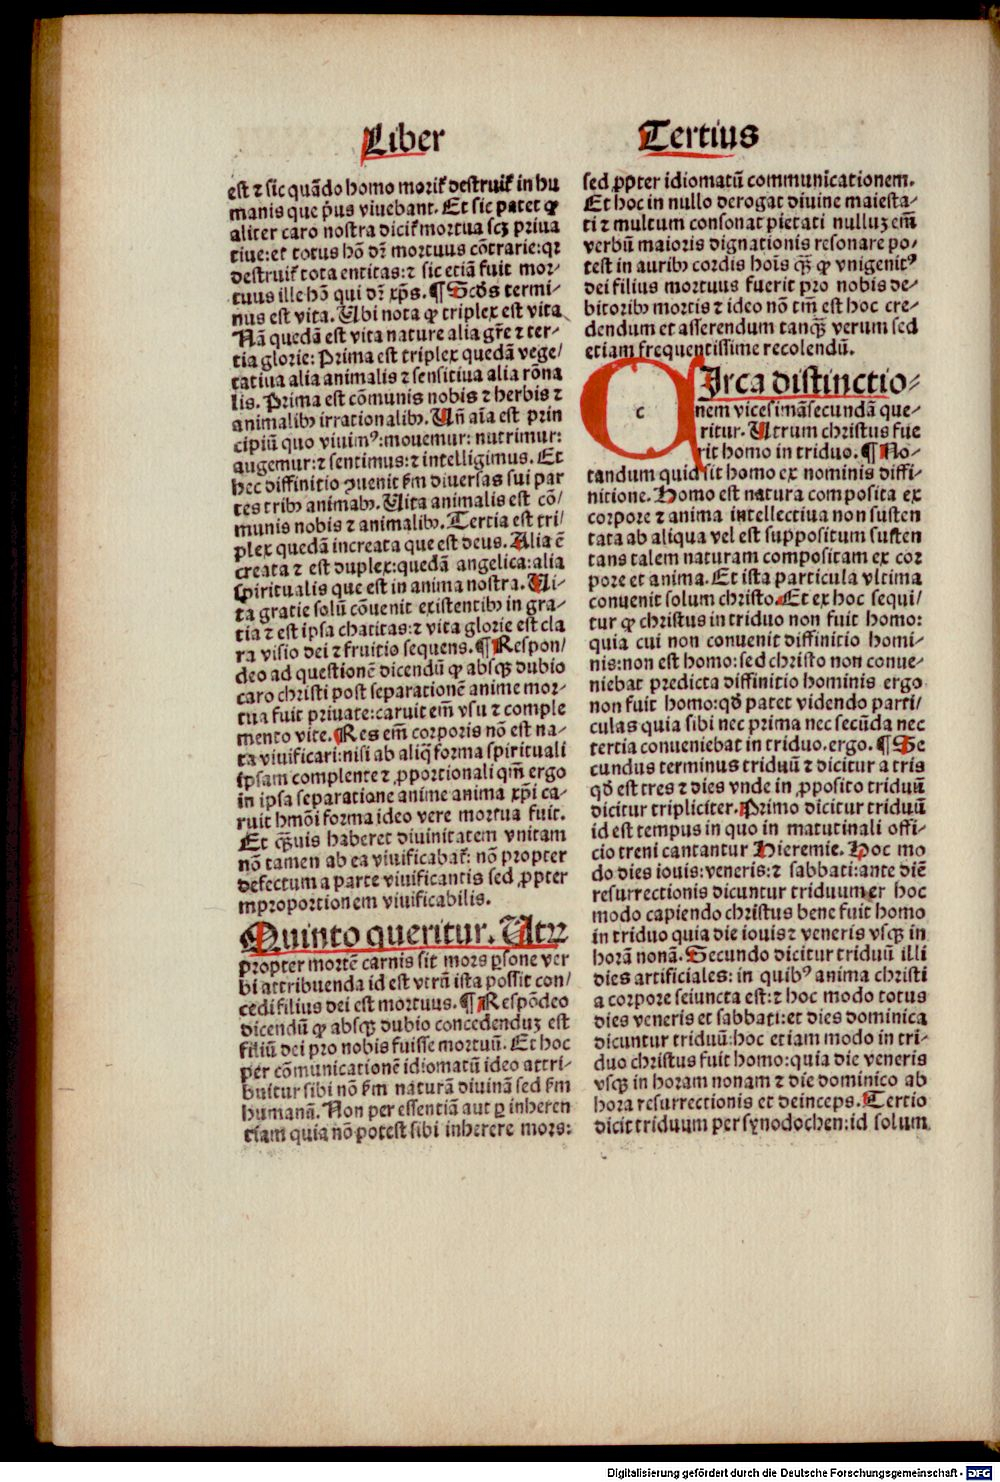 Liber
est ⁊ sic quãdo homo morit᷑ destruit᷑ in hu
manis que pͥus viuebant. Et sic patet ꝙ
aliter caro nostra dicit᷑ mortua scꝫ priua
tiue: et᷑ totus hõ dr̃ mortuus cõtrarie: qꝛ
destruit᷑ tota entitas: ⁊ sic etiã fuit mor⸗
tuus ille hõ qui dr̃ xp̃s. ¶ Scd̾s termi⸗
nus est vita. Ubi nota ꝙ triplex est vita
Nã quedã est vita nature alia gr̃e ⁊ ter⸗
tia glorie: Prima est triplex quedã vege/
tatiua alia animalis ⁊ sensitiua alia rõna
lis. Prima est cõmunis nobis ⁊ herbis ⁊
animalibꝫ irrationalibꝫ. Uñ aĩa est prin
cipiũ quo viuimꝰ: mouemur: nutrimur:
augemur: ⁊ sentimus: ⁊ intelligimus. Et
hec diffinitio ↄuenit ẜm diuersas sui par
tes tribꝫ animabꝫ. Uita animalis est cõ/
munis nobis ⁊ animalibꝫ. Tertia est tri/
plex quedã increata que est deus. Alia ẽ
creata ⁊ est duplex: quedã angelica: alia
spiritualis que est in anima nostra. Ui⸗
ta gratie solũ cõuenit existentibꝫ in gra⸗
tia ⁊ est ipsa chatitas: ⁊ vita glorie est cla
ra visio dei ⁊ fruitio sequens. ¶ Respon/
deo ad questionẽ dicendũ ꝙ absqꝫ dubio
caro christi post separationẽ anime mor⸗
tua fuit priuate: caruit em̃ vsu ⁊ comple
mento vite. Res em̃ corporis nõ est na⸗
ta viuificari: nisi ab aliq̃ forma spirituali
ipsam complente ⁊ ꝓportionali qm̃ ergo
in ipsa separatione anime anima xp̃i ca⸗
ruit hm̃õi forma ideo vere mortua fuit.
Et q̃ꝫuis haberet diuinitatem vnitam
nõ tamen ab ea viuificabat᷑: nõ propter
defectum a parte viuificantis sed ꝓpter
inproportionem viuificabilis.
Quinto queritur. Utꝝ
propter mortẽ carnis sit mors ꝑsone ver
bi attribuenda id est vtrũ ista possit con/
cedi filius dei est mortuus. ¶ Respõdeo
dicendũ ꝙ absqꝫ dubio concedenduꝫ est
filiũ dei pro nobis fuisse mortuũ. Et hoc
per cõmunicationẽ idiomatũ ideo attri⸗
buitur sibi nõ ẜm naturã diuinã sed ẜm
humanã. Non per essentiã aut ꝑ inheren
tiam quia nõ potest sibi inherere mors:
Tertius
sed ꝓpter idiomatũ communicationem.
Et hoc in nullo derogat diuine maiesta⸗
ti ⁊ multum consonat pietati nulluꝫ em̃
verbũ maioris dignationis resonare po⸗
test in auribꝫ cordis hoĩs q̃ꝫ ꝙ vnigenitꝰ
dei filius mortuus fuerit pro nobis de⸗
bitoribꝫ mortis ⁊ ideo nõ tm̃ est hoc cre⸗
dendum et asserendum tanq̃ꝫ verum sed
etiam frequentissime recolendũ.
CIrca distinctio⸗
nem vicesimãsecundã que⸗
ritur. Utrum christus fue
rit homo in triduo. ¶ No⸗
tandum quid sit homo ex nominis diffi⸗
nitione. Homo est natura composita ex
corpore ⁊ anima intellectiua non susten
tata ab aliqua vel est suppositum susten
tans talem naturam compositam ex cor
pore et anima. Et ista particula vltima
conuenit solum christo. Et ex hoc sequi/
tur ꝙ christus in triduo non fuit homo:
quia cui non conuenit diffinitio homi⸗
nis: non est homo: sed christo non conue⸗
niebat predicta diffinitio hominis ergo
non fuit homo: qd̾ patet videndo parti/
culas quia sibi nec prima nec secũda nec
tertia conueniebat in triduo. ergo. ¶ Se
cundus terminus triduũ ⁊ dicitur a tris
qd̾ est tres ⁊ dies vnde in ꝓposito triduũ
dicitur tripliciter. Primo dicitur triduũ
id est tempus in quo in matutinali offi⸗
cio treni cantantur Hieremie. Hoc mo
do dies iouis: veneris: ⁊ sabbati: ante diẽ
resurrectionis dicuntur triduum er hoc
modo capiendo christus bene fuit homo
in triduo quia die iouis ⁊ veneris vsqꝫ in
horã nonã. Secundo dicitur triduũ illi
dies artificiales: in quibꝰ anima christi
a corpore seiuncta est: ⁊ hoc modo totus
dies veneris et sabbati: et dies dominica
dicuntur triduũ: hoc etiam modo in tri⸗
duo christus fuit homo: quia die veneris
vsqꝫ in horam nonam ⁊ die dominico ab
hora resurrectionis et deinceps. Tertio
dicit triduum per synodochen: id solum
Digitalisierung gefördert durch die Deutsche Forschungsgemeinschaft - DFG